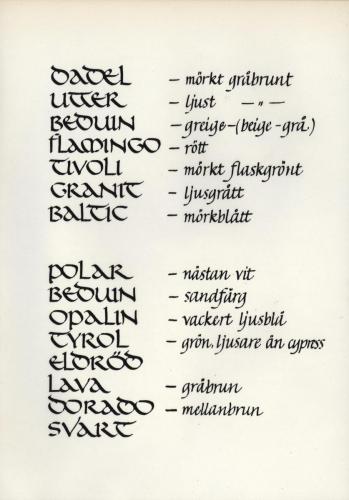 DADEL – mörkt gråbrunt
UTTER – ljust —〃—
BEDUIN – greige – (beige-grå)
FLAMINGO – rött
TIVOLI – mörkt flaskgrönt
GRANIT – ljusgrått
BALTIC – mörkblått
POLAR – nästan vit
BEDUIN – sandfärg
OPALIN – vackert ljusblå
TYROL – grön, ljusare än cypress
ELDRÖD
LAVA – gråbrun
DORADO – mellanbrun
SVART